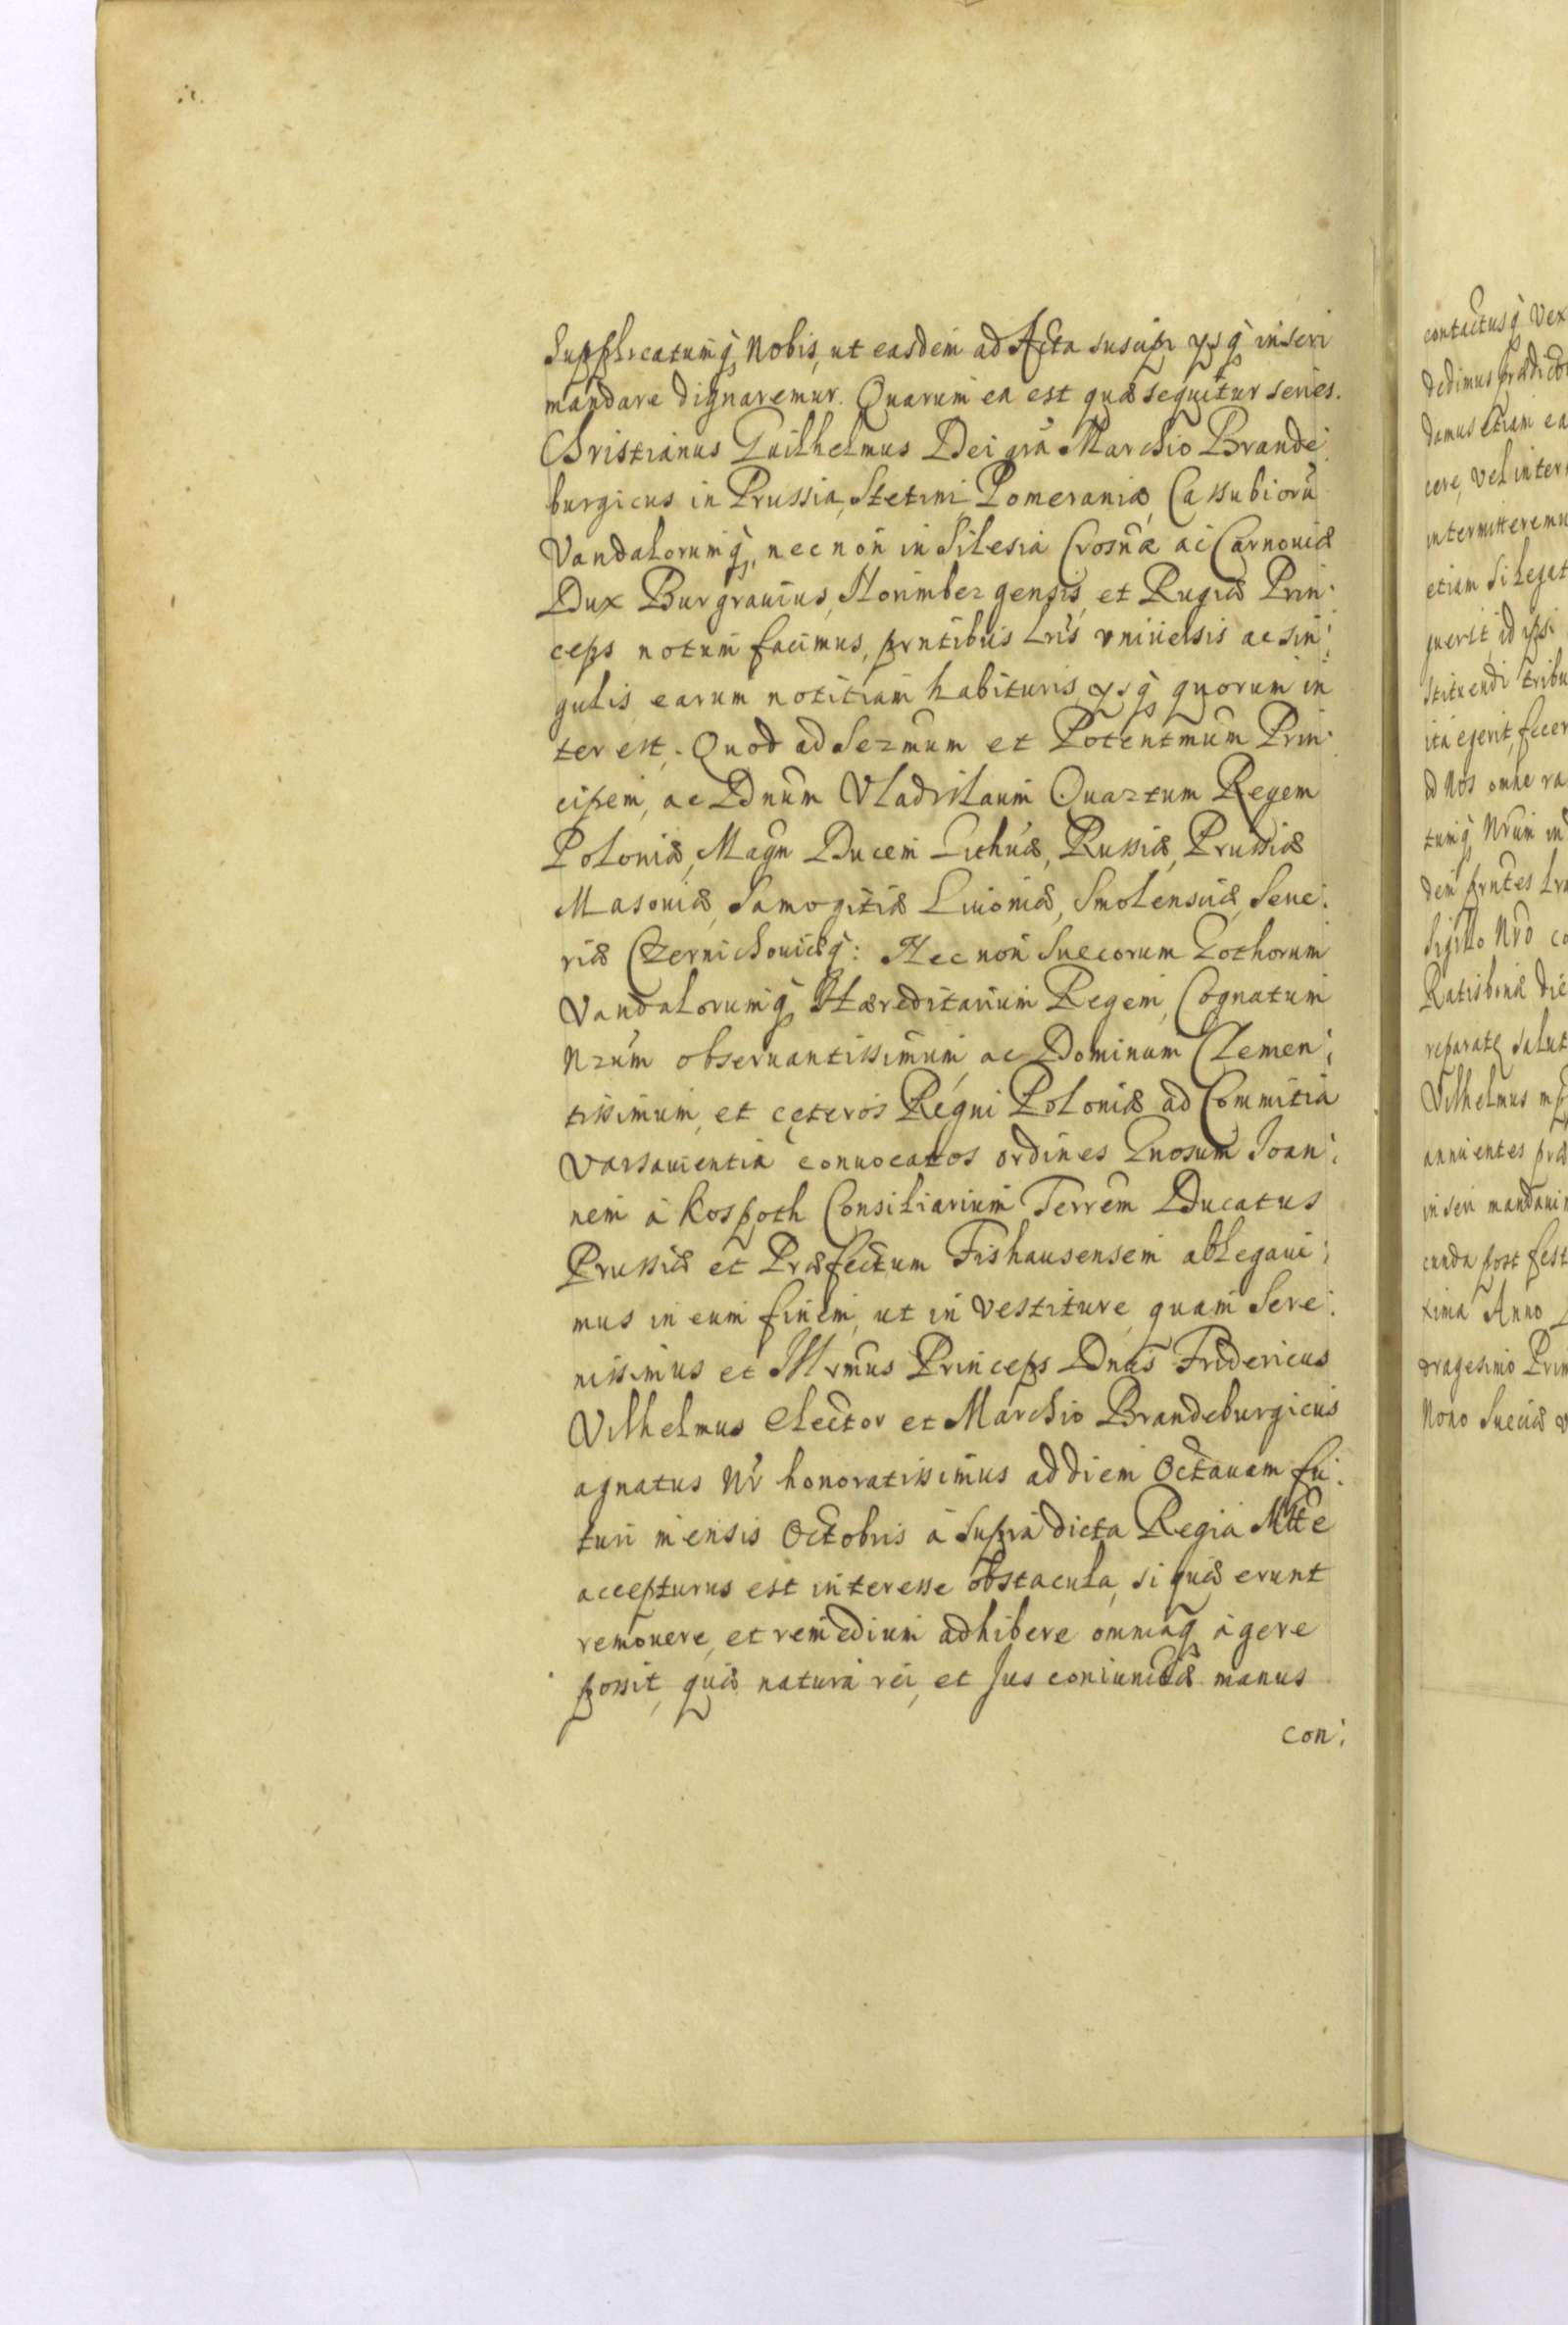 Supplicatumq́ꝫ Nobis, ut easdem ad Acta suscipi ysq́ꝫ inseri
mandare dignaremur. Quarum ea est quæ sequitur series.
Christianus Guilhelmus Dei grã Marchio Brande:
burgicus in Prussia, Stetini Pomeraniæ, Cassubiorũ
Vandalorumq́ꝫ, nec non in Silesia Crosnæ ac Carnouiæ
Dux Burgrauius, Norimbergensis et Rugiæ Prin:
ceps notum facimus, prntibus Lris vniuersis ac sin:
gulis earum notitiam habituris, ysq́ꝫ quorum in
ter est. Quod ad Serm̃um et Potentm̃um Prin:
cipem, ac Dnũm Vladislaum Quartum Regem
Poloniæ, Magn Ducem Lithũæ, Russiæ, Prussiæ
Masouiæ, Samogitiæ Liuoniæ, Smolensciæ, Seue:
riæ Czernichouiæq́: Nec non Suecorum Gothorum
Vandalorumq́ꝫ Hæreditarium Regem, Cognatum
Nrũm obseruantissimum, ac Dominum Clemen:
tissimum, et cęteros Regni Poloniæ ad Commitia
Varsauientia conuocatos ordines Gnosum Joan:
nem à Kospoth Consiliarium Terrem Ducatus
Prussiæ et Præfectum Fishausensem ablegaui:
mus in eum finem, ut in vestiture, quam Sere:
nissimus et Illrm̃us Princeps Dnũs Fridericus
Vilhelmus Elector et Marchio Brandeburgicus
agnatus Nr̃ honoratissimus ad diem Octauam fu:
turi mensis Octobris à Supra dicta Regia Mtte
accepturus est interesse obstacula, si quæ erunt
remouere, et remedium adhibere omniaq́ꝫ agere
possit, quæ natura rei, et Jus coniunctæ manus
con:
contactusq́ꝫ Vex
dedimus
damus etiam ea
cere, vel inter
intermitteremu
etiam si Legat
querit, id ipsi
stituendi tribu
ita egerit, fecer
ad Nos omne ra
tumq́ꝫ Nrũm in
dem prntes Lr
Sigillo Nro co
Ratisbonæ die
reparatę salut
Vilhelmus mp
annuentes præ
inseri mandaui
cunda post fest
xima Anno
dragesimo Prim
Nono Sueciæ v